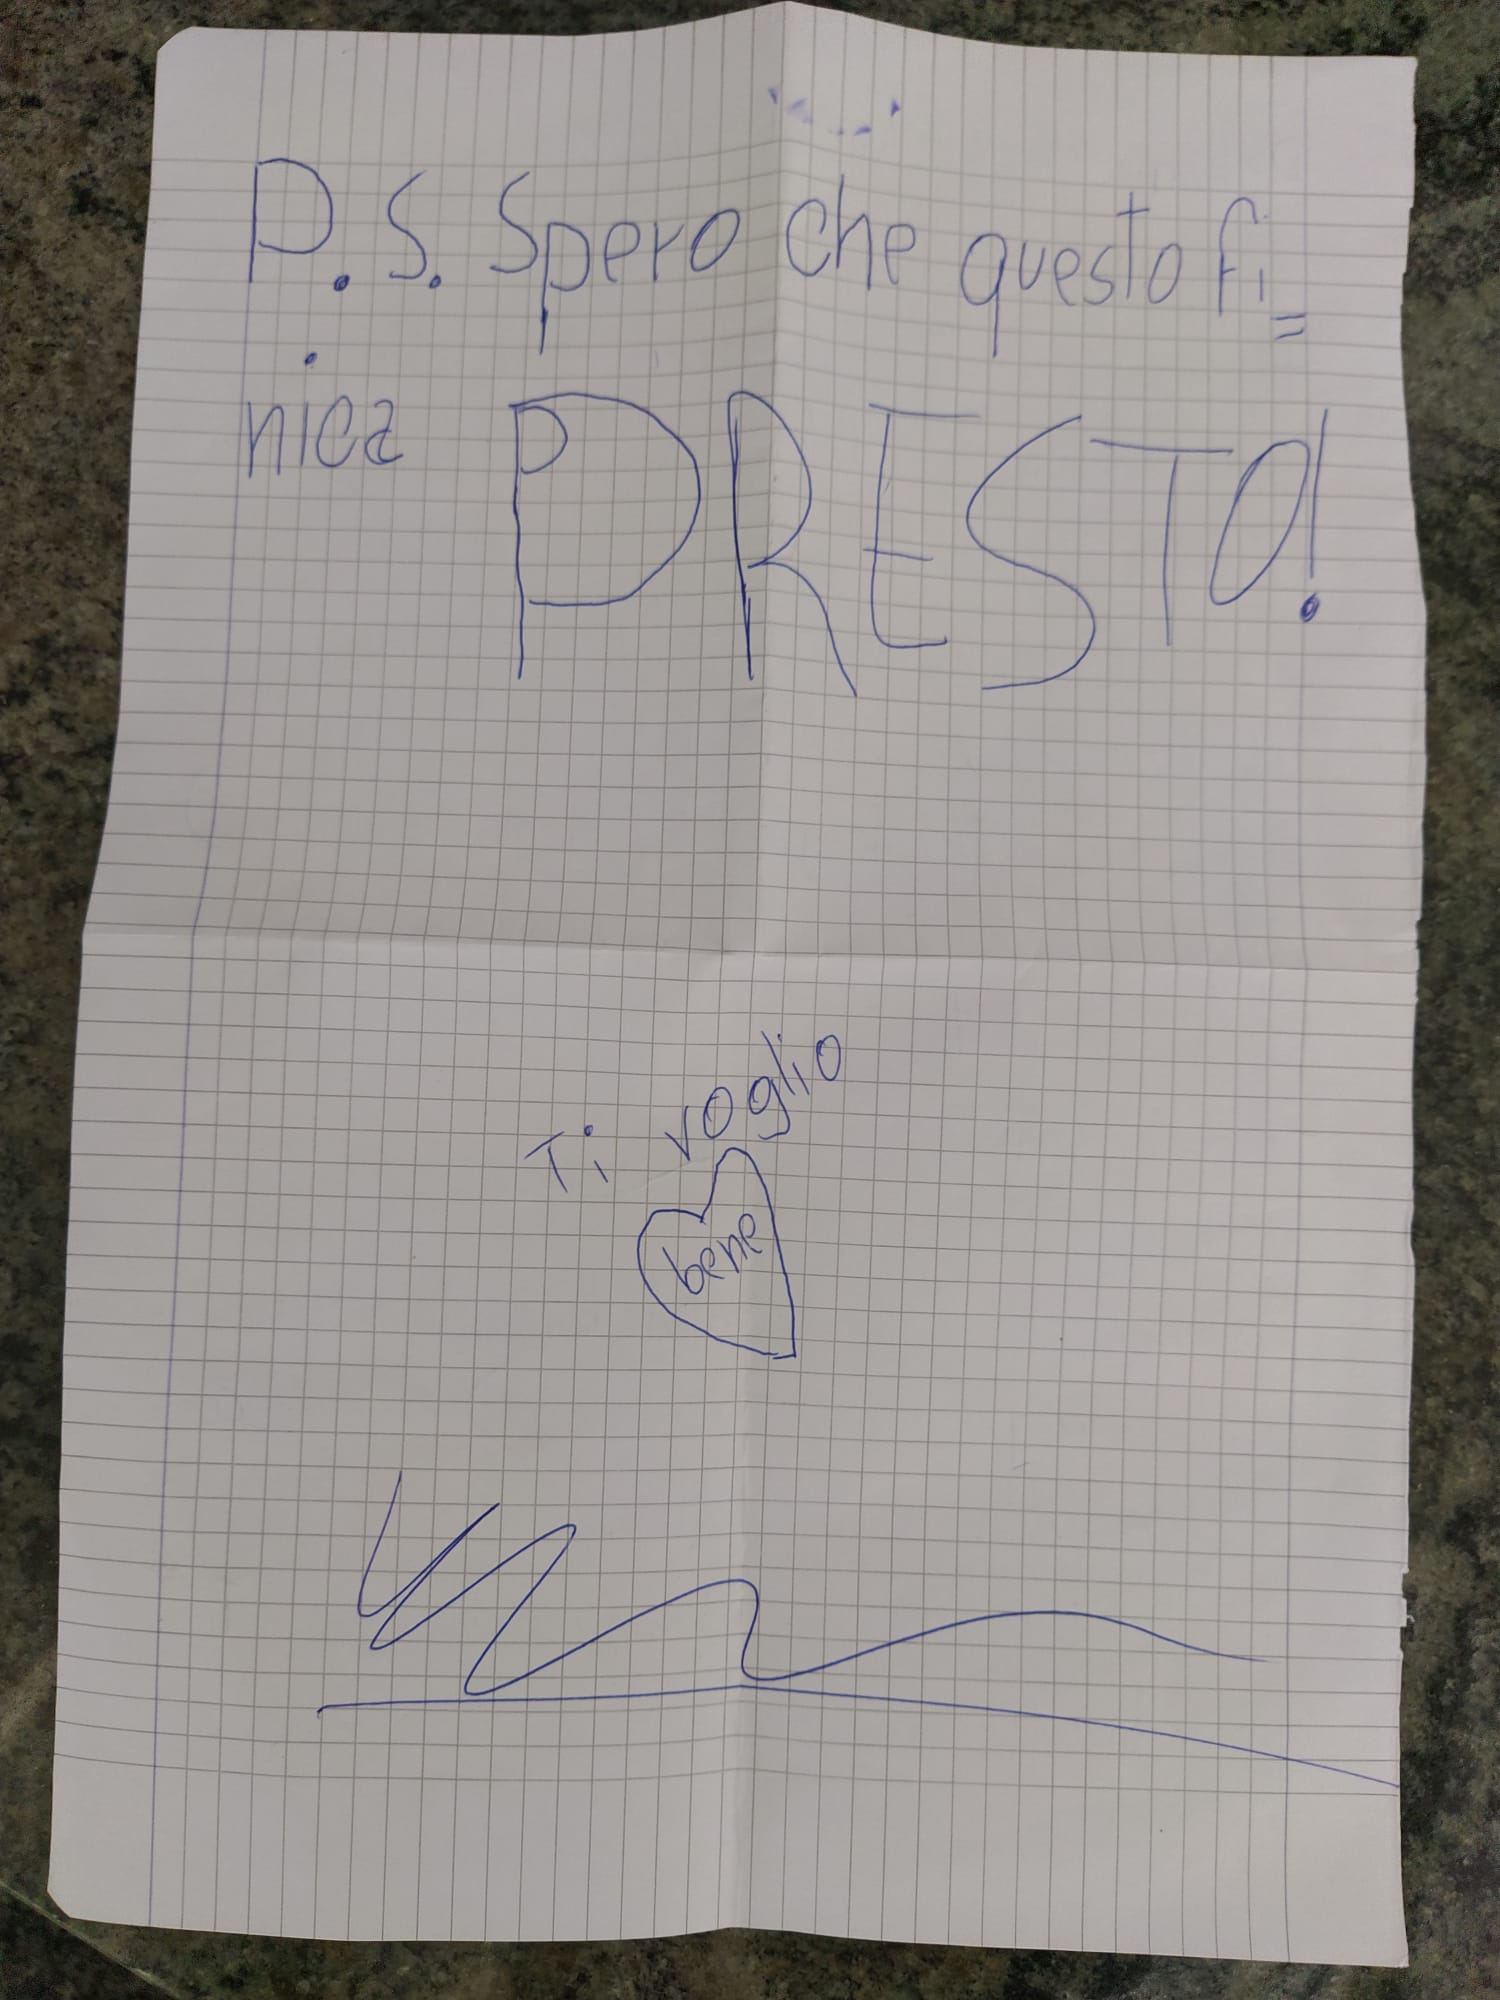 P.S. Spero che questo fi=
nica PRESTO!
Ti voglio
bene